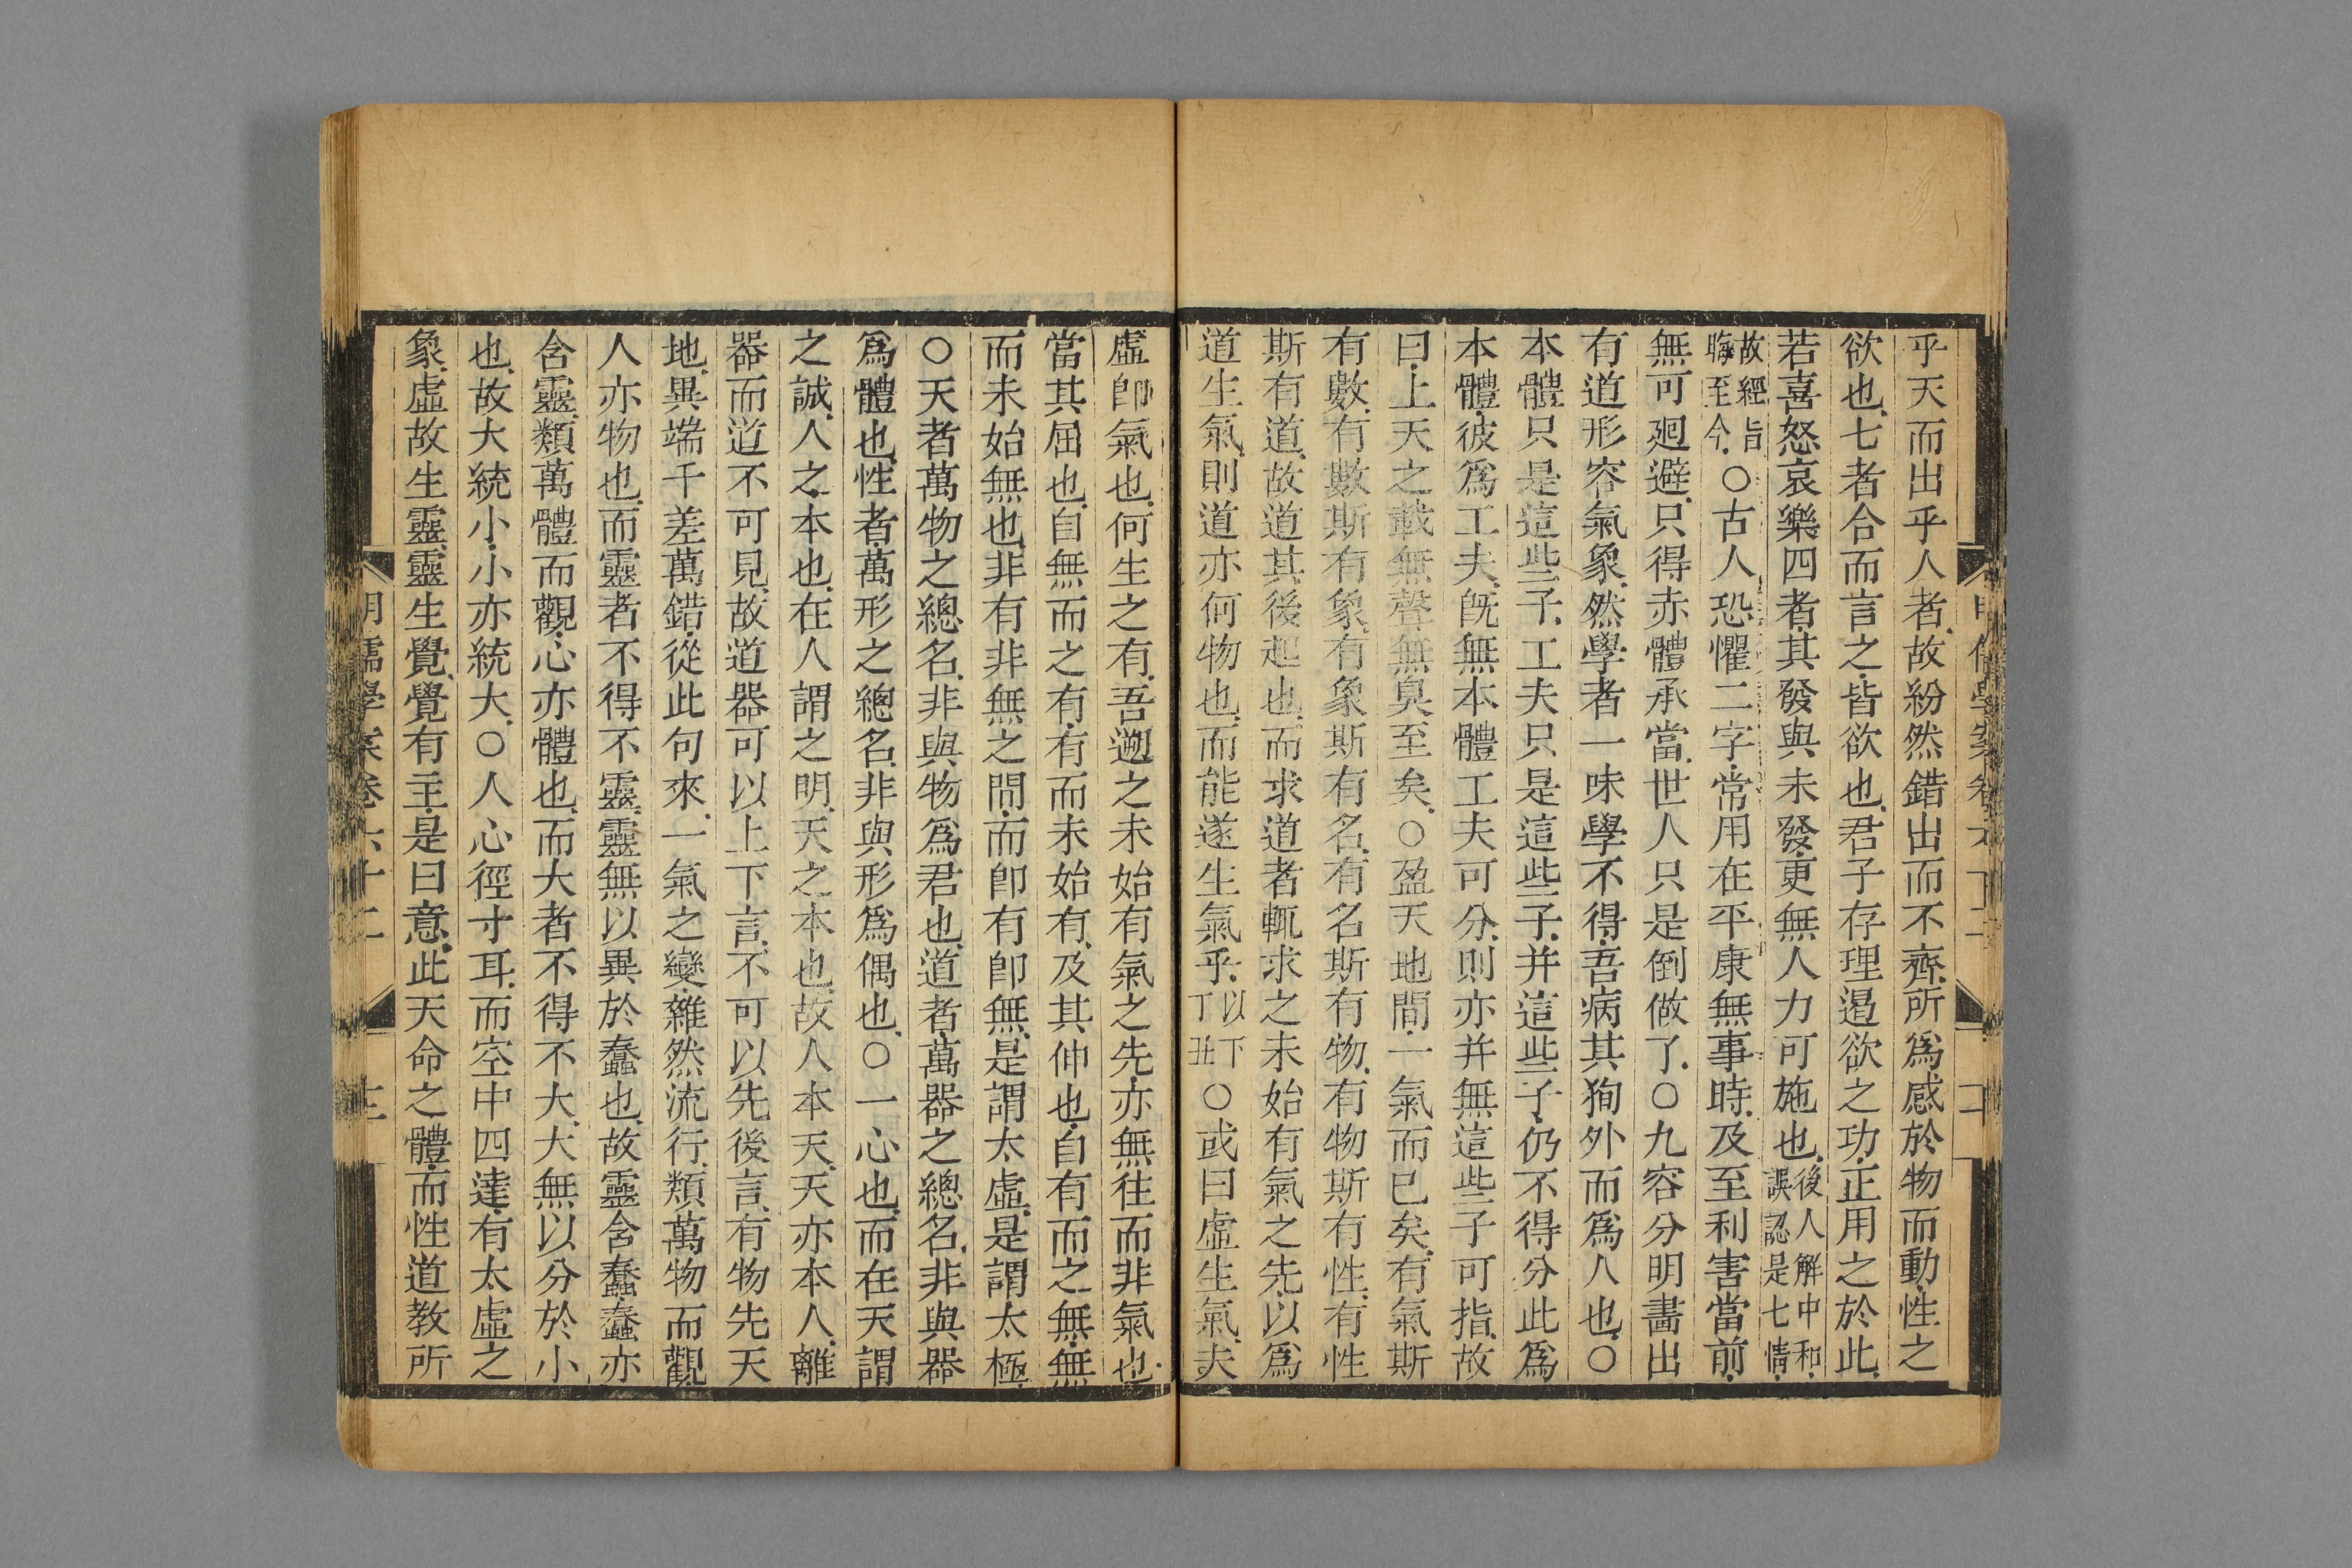 乎天而出乎人者故紛然錯出而不齊所爲感於物而動性之
欲也七者合而言之皆欲也君子存理遏欲之功正用之於此
若喜怒哀樂四者其發與未發更無人力可施也後人解中和誤認是七情
故經旨晦至今○古人恐懼二字常用在平康無事時及至利害當前
無可廻避只得赤體承當世人只是倒做了○九容分明畫出
有道形容氣象然學者一味學不得吾病其狥外而爲人也○
本體只是這些子工夫只是這些子并這些子仍不得分此爲
本體彼爲工夫旣無本體工夫可分則亦并無這些子可指故
曰上天之載無聲無臭至矣○盈天地間一氣而已矣有氣斯
有數有數斯有象有象斯有名有名斯有物有物斯有性有性
斯有道故道其後起也而求道者輒求之未始有氣之先以爲
道生氣則道亦何物也而能遂生氣乎以下丁丑○或曰虛生氣夫
虛卽氣也何生之有吾遡之未始有氣之先亦無往而非氣也
當其屈也自無而之有有而未始有及其伸也自有而之無無
而未始無也非有非無之間而卽有卽無是謂太虛是謂太極
○天者萬物之總名非與物爲君也道者萬器之總名非與器
爲體也性者萬形之總名非與形爲偶也○一心也而在天謂
之誠人之本也在人謂之明天之本也故人本天天亦本人離
器而道不可見故道器可以上下言不可以先後言有物先天
地異端千差萬錯從此句來一氣之變雜然流行類萬物而觀
人亦物也而靈者不得不靈靈無以異於蠢也故靈含蠢蠢亦
含靈類萬體而觀心亦體也而大者不得不大大無以分於小
也故大統小小亦統大○人心徑寸耳而空中四達有太虛之
象虛故生靈靈生覺覺有主是曰意此天命之體而性道教所
明儒學案卷六十二